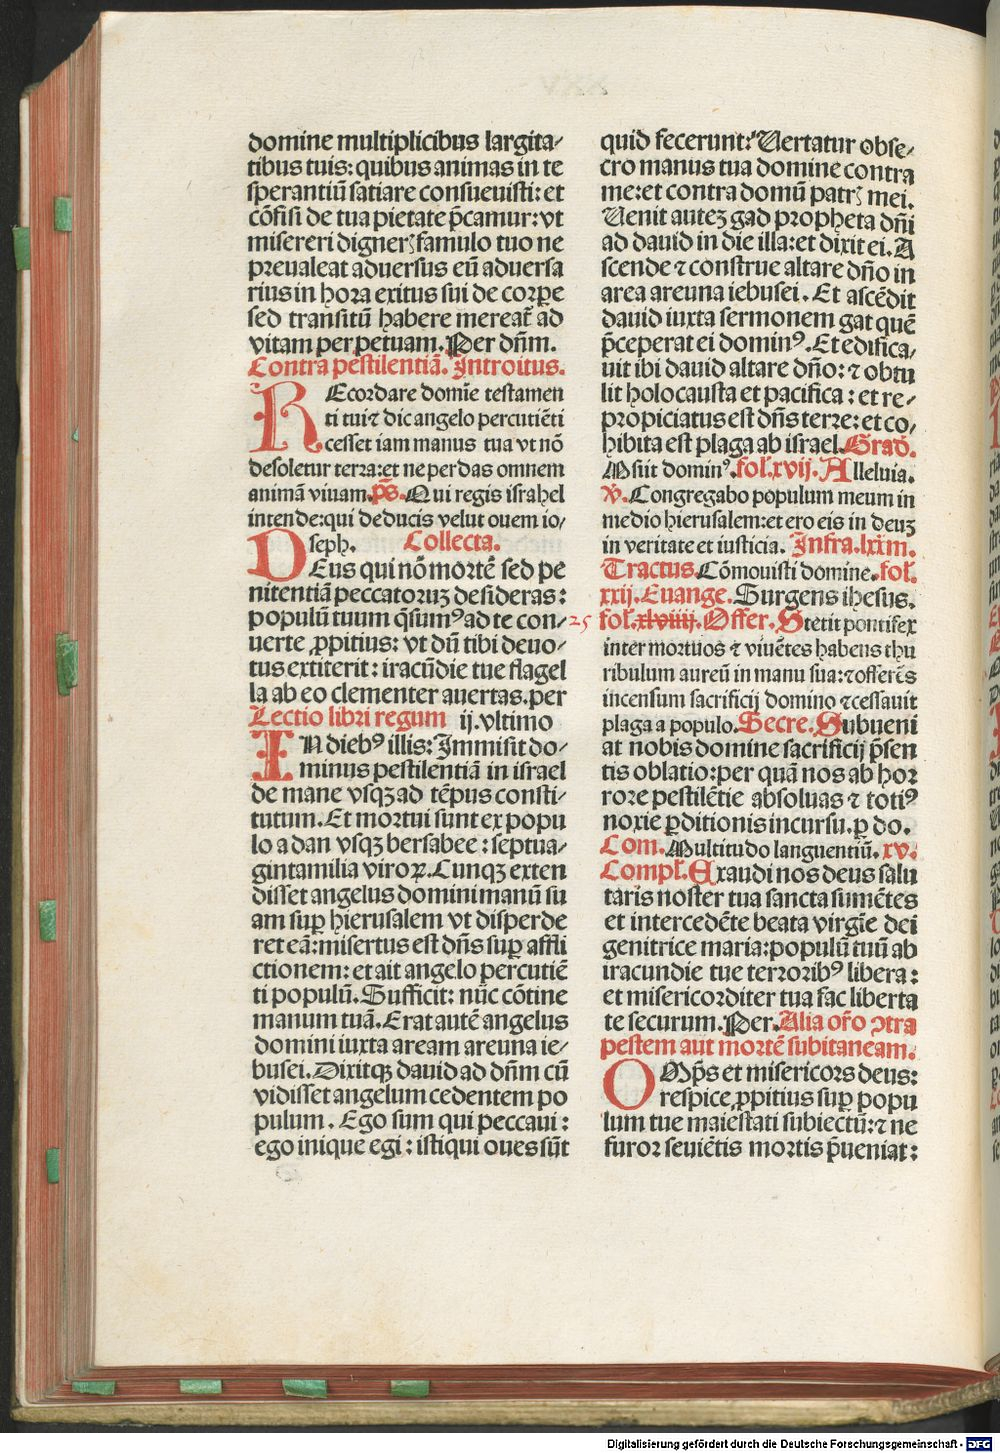 domine multiplicibus largita⸗
tibus tuis: quibus animas in te
sperantiū satiare consueuisti: et
cōfisi de tua pietate p̄camur: vt
misereri digneꝝ famulo tuo ne
preualeat aduersus eū aduersa
rius in hora exitus sui de corꝑe
sed transitū habere mereat̄ ad
vitam perpetuam. Per dn̄m.
Contra pestilentiā. Introitus.
REcordare domīe testamen
ti tui⁊ dic angelo percutiēti
cesset iam manus tua vt nō
desoletur terra: et ne perdas omnem
animā viuam. p̄s. Qui regis israhel
intende: qui deducis velut ouem io⸗
seph. Collecta.
DEus qui nō mortē sed pe
nitentiā peccatoruz desideras:
populū tuum q̄sumꝰ ad te con⸗
uerte ꝓpitius: vt dū tibi deuo⸗
tus extiterit: iracūdie tue flagel
la ab eo clementer auertas. per
Lectio libri regum ij. vltimo
IN diebꝰ illis: Immisit do⸗
minus pestilentiā in israel
de mane vsqꝫ ad tēpus consti⸗
tutum. Et mortui sunt ex popu
lo a dan vsqꝫ bersabee: septua⸗
gintamilia viroꝝ. Cunqꝫ exten
disset angelus domini manū su
am suꝑ hierusalem vt disperde
ret eā: misertus est dn̄s suꝑ affli
ctionem: et ait angelo percutiē
ti populū. Sufficit: nūc cōtine
manum tuā. Erat autē angelus
domini iuxta aream areuna ie⸗
busei. Dixitqꝫ dauid ad dn̄m cū
vidisset angelum cedentem po
pulum. Ego sum qui peccaui:
ego inique egi: isti qui oues sūt
quid fecerunt? Vertatur obse⸗
cro manus tua domine contra
me: et contra domū patrꝭ mei.
Venit autez gad propheta dn̄i
ad dauid in die illa: et dixit ei. A
scende ⁊ construe altare dn̄o in
area areuna iebusei. Et ascēdit
dauid iuxta sermonem gat quē
p̄ceperat ei dominꝰ. Et edifica⸗
uit ibi dauid altare dn̄o: ⁊ obtu
lit holocausta et pacifica: et re⸗
propiciatus est dn̄s terre: et co⸗
hibita est plaga ab israel. Grad̄.
Misit dominꝰ. fol̄. xvij. Alleluia.
v̄. Congregabo populum meum in
medio hierusalem: et ero eis in deuz
in veritate et iusticia. Infra. lxxm.
Tractus. Cōmouisti domine. fol̄.
xxij. Euange. Surgens ihesus.
25 fol̄. xlviiij. Offer. Stetit pontifex
inter mortuos ⁊ viuētes habens thu
ribulum aureū in manu sua: ⁊ offerēs
incensum sacrificij domino ⁊ cessauit
plaga a populo. Secre. Subueni
at nobis domine sacrificij p̄sen
tis oblatio: per quā nos ab hor
rore pestilētie absoluas ⁊ totiꝰ
noxie ꝑditionis incursu. ꝑ do.
Com. Multitudo languentiū. xv.
Compl̄. Exaudi nos deus salu
taris noster tua sancta sumētes
et intercedēte beata virgīe dei
genitrice maria: populū tuū ab
iracundie tue terroribꝰ libera:
et misericorditer tua fac liberta
te securum. Per. Alia or̄o ↄtra
pestem aut mortē subitaneam.
OMp̄s et misericors deus:
respice ꝓpitius suꝑ popu
lum tue maiestati subiectū: ⁊ ne
furor seuiētis mortis p̄ueniat:
Digitalisierung gefördert durch die Deutsche Forschungsgemeinschaft - DFG